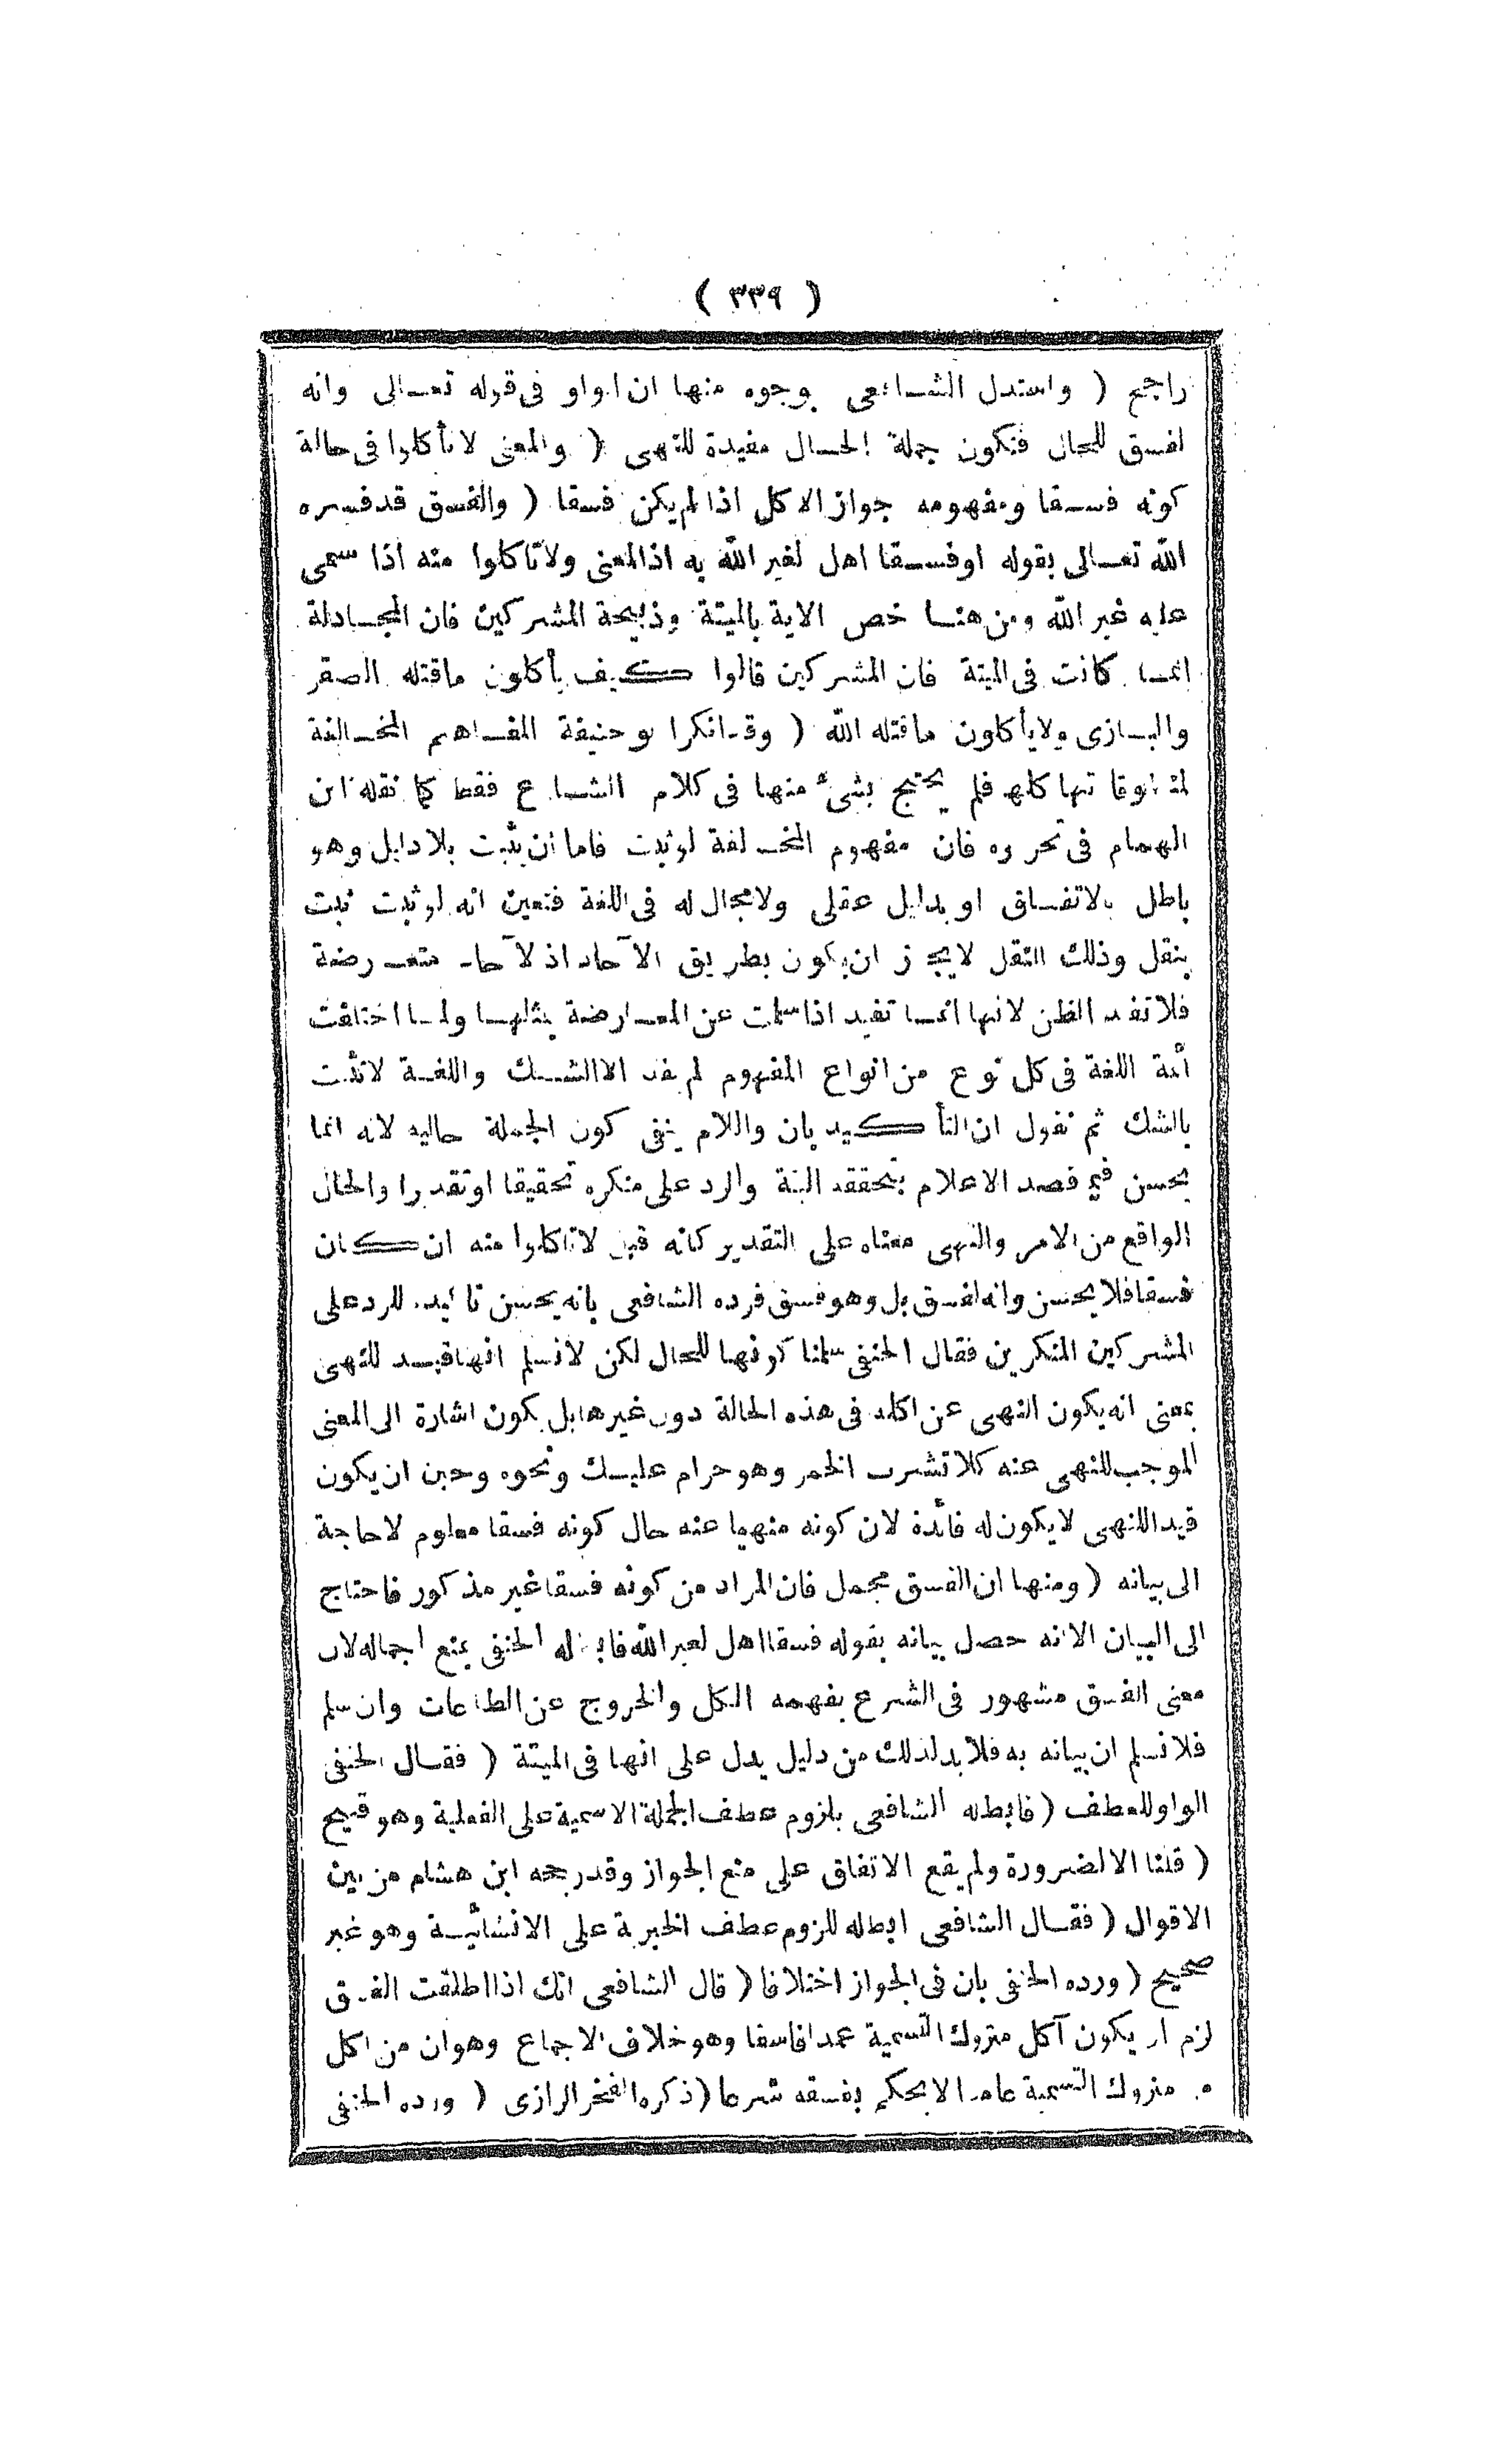 ( ٣٣٩ )
راجح ( واستدل الشافعى بوجوه منها ان الواو فى قوله تعالى وانه
لفسق للحال فتكون جملة الحال مفيدة للنهى ( والمعنى لا تأكلوا فى حالة
كونه فسقا ومفهومه جواز الاكل اذا لم يكن فسقا ( والفسق قد فسره
الله تعالى بقوله او فسقا اهل لغير الله به اذ المعنى ولا تأكلوا منه اذا سمى
عليه غير الله ومن هنا خص الاية بالميتة وذبيحة المشركين فان المجادلة
انما كانت فى الميتة فان المشركين قالوا كيف يأكلون ما قتله الصقر
والبازى ولا يأكلون ما قتله الله ( وقد انكر ابو حنيفة المفاهيم المخالفة
لمنطوقاتها كلها فلم يحتج بشئ منها فى كلام الشارع فقط كما نقله ابن
الهمام فى تحريره فان مفهوم المخالفة لو ثبت فاما ان يثبت بلا دليل وهو
باطل بالاتفاق او بدليل عقلى ولا مجال له فى اللغة فتعين انه لو ثبت ثبت
بنقل وذلك النقل لا يجوز ان يكون بطريق الآحاد اذ الآحاد متعارضة
فلا تفيد الظن لانها انما تفيد اذا سلمت عن المعارضة بمثلها ولما اختلفت
أئمة اللغة فى كل نوع من انواع المفهوم لم يفد الا الشك واللغة لا تثبت
بالشك ثم نقول ان التأكيد بان واللام ينفى كون الجملة حاليه لانه انما
يحسن فيما قصد الاعلام بتحققه البتة والرد على منكره تحقيقا او تقديرا والحال
الواقع من الامر والنهى معناه على التقدير كانه قيل لا تأكلوا منه ان كان
فسقا فلا يحسن وانه لفسق بل وهو فسق فرده الشافعى بانه يحسن تأكيده للرد على
المشركين المنكرين فقال الحنفى سلمنا كونها للحال لكن لا نسلم انها قيد للنهى
بمعنى انه يكون النهى عن اكله فى هذه الحالة دون غيرها بل يكون اشارة الى المعنى
الموجب للنهى عنه كلا تشرب الخمر وهو حرام عليك ونحوه وحين ان يكون
قيدا للنهى لا يكون له فائدة لان كونه منهيا عنه حال كونه فسقا معلوم لا حاجة
الى بيانه ( ومنها ان الفسق مجمل فان المراد من كونه فسقا غير مذكور فاحتاج
الى البيان الا انه حصل بيانه بقوله فسقا اهل لغير الله فابطله الحنفى بمنع اجماله لان
معنى الفسق مشهور فى الشرع يفهمه الكل والخروج عن الطاعات وان سلم
فلا نسلم ان بيانه به فلا بد لذلك من دليل يدل على انها فى الميتة ( فقال الحنفى
الواو للعطف ( فابطله الشافعى بلزوم عطف الجملة الاسمية على الفعلية وهو قبيح
( قلنا الا لضرورة ولم يقع الاتفاق على منع الجواز وقد رجحه ابن هشام من بين
الاقوال ( فقال الشافعى ابطله للزوم عطف الخبرية على الانشائية وهو غير
صحيح ( ورده الحنفى بان فى الجواز اختلافا ( قال الشافعى انك اذا اطلقت الفسق
لزم ان يكون آكل متروك التسمية عمدا فاسقا وهو خلاف الاجماع وهو ان من اكل
متروك التسمية عامدا لا يحكم بفسقه شرعا ( ذكره الفخر الرازى ( ورده الحنفى